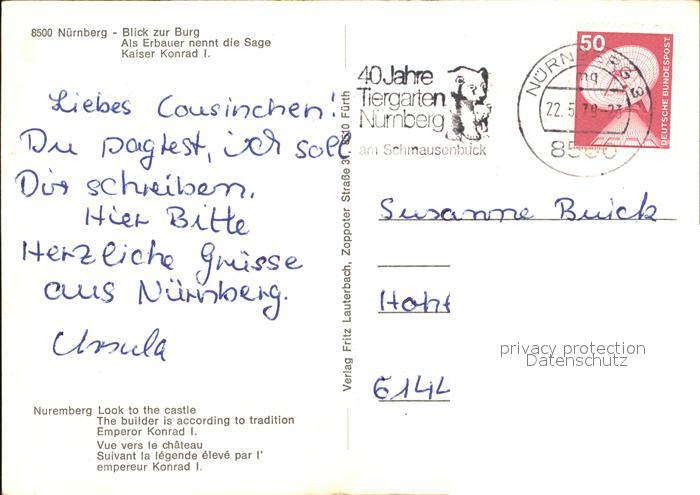 8500 Nürnberg - Blick zur Burg
Als Erbauer nennt die Sage
Kaiser Konrad I.
Liebes Cousinchen!
Du sagtest, ich soll
Dir schreiben.
Hier Bitte
Herzliche Grüsse
aus Nürnberg.
Ursula
Nuremberg Look to the castle
The builder is according to tradition
Emperor Konrad I.
Vue vers le château
Suivant la légende élevé par l'
empereur Konrad I.
Verlag Fritz Lauterbach, Zoppoter Straße 8510 Fürth
40 Jahre
Tiergarten
Nürnberg
am Schmausenbuck
NÜRNBERG
mg
22.5.79
50
DEUTSCHE BUNDESPOST
Susanne Buick
6144
privacy protection
Datenschutz